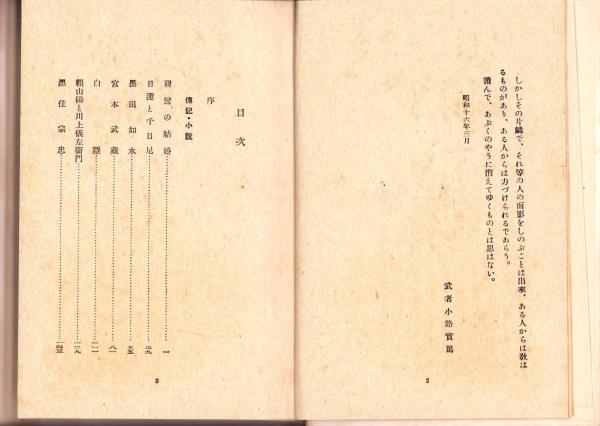 しかしその片鱗で、それ等の人の面影をしのぶことは出來、ある人からは敎は
るものがあり、ある人からは力づけられるであらう。
讀んで、あぶくのやうに消えてゆくものとは思はない。
昭和十六年三月
武者小路實篤
2
目次
序
傳記・小說
親鸞の結婚 一
日蓮と千日尼
黑田如水
宮本武藏 八一
白隱
賴山陽と川上儀左衞門
黑住宗忠
3